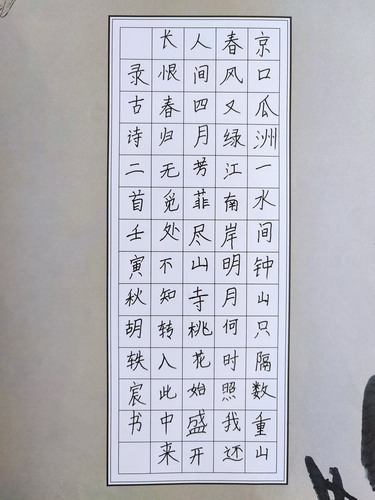 京口瓜洲一水间钟山只隔数重山
春风又绿江南岸明月何时照我还
人间四月芳菲尽山寺桃花始盛开
长恨春归无觅处不知转入此中来
录古诗二首壬寅秋胡轶宸书